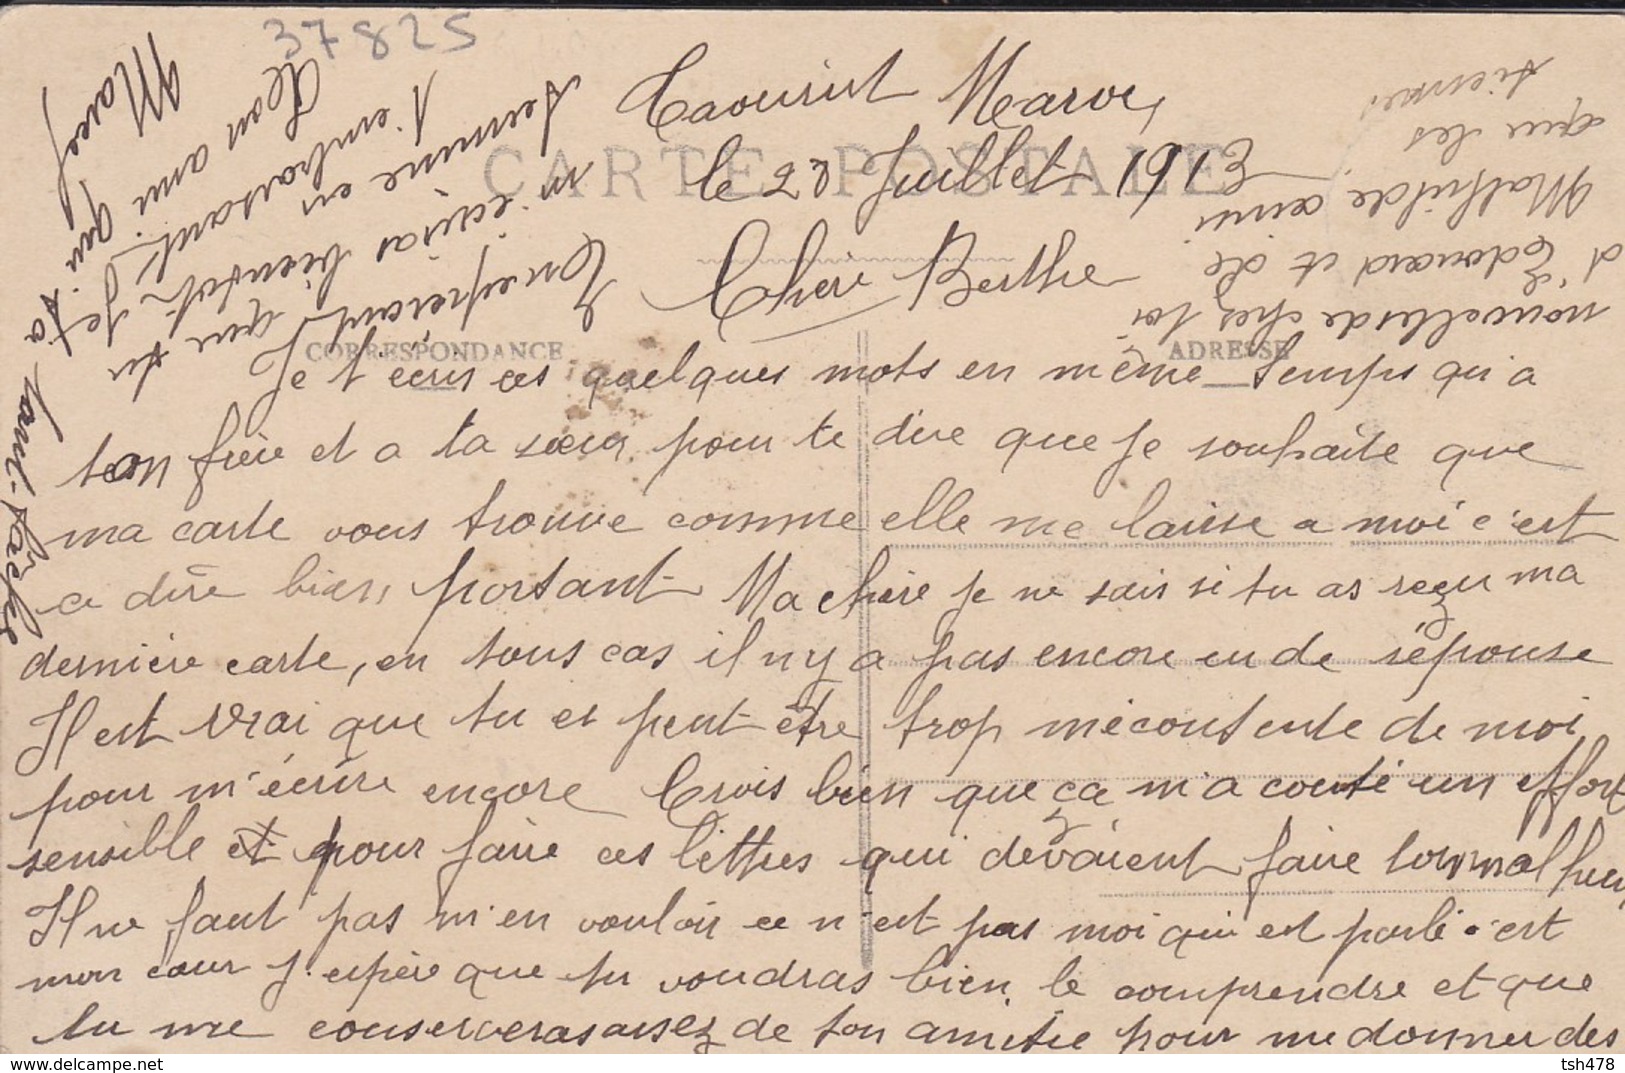 37825
Taourirt Maroc,
le 22 Juillet 1913
CARTE POSTALE
Chère Berthe
CORRESPONDANCE
ADRESSE
Je t'écris ces quelques mots en même temps qu'a
ton frère et a ta sœur pour te dire que je souhaite que
ma carte vous trouve comme elle me laisse a moi c'est
a dire bien portant Ma chère je ne sais si tu as reçu ma
dernière carte, en tous cas il n'y a pas encore eu de réponse
Il est vrai que tu es peut-être trop mécontente de moi
pour m'écrire encore Crois bien que ça m'a couté un effort
sensible et pour faire ces lettres qui devaient faire tout mal
Il ne faut pas m'en vouloir ce n'est pas moi qui est parlé c'est
mon cœur j'espère que tu voudras bien le comprendre et que
tu me conserveras assez de ton amitié pour me donner des
nouvelles de chez toi
d'Edouard et de
Mathilde ainsi
que les
tiennes
En espérant que tu
m'écriras bientôt je
termine en t'embrassant
Ton ami qui t'a tant
Marcel
tsh478